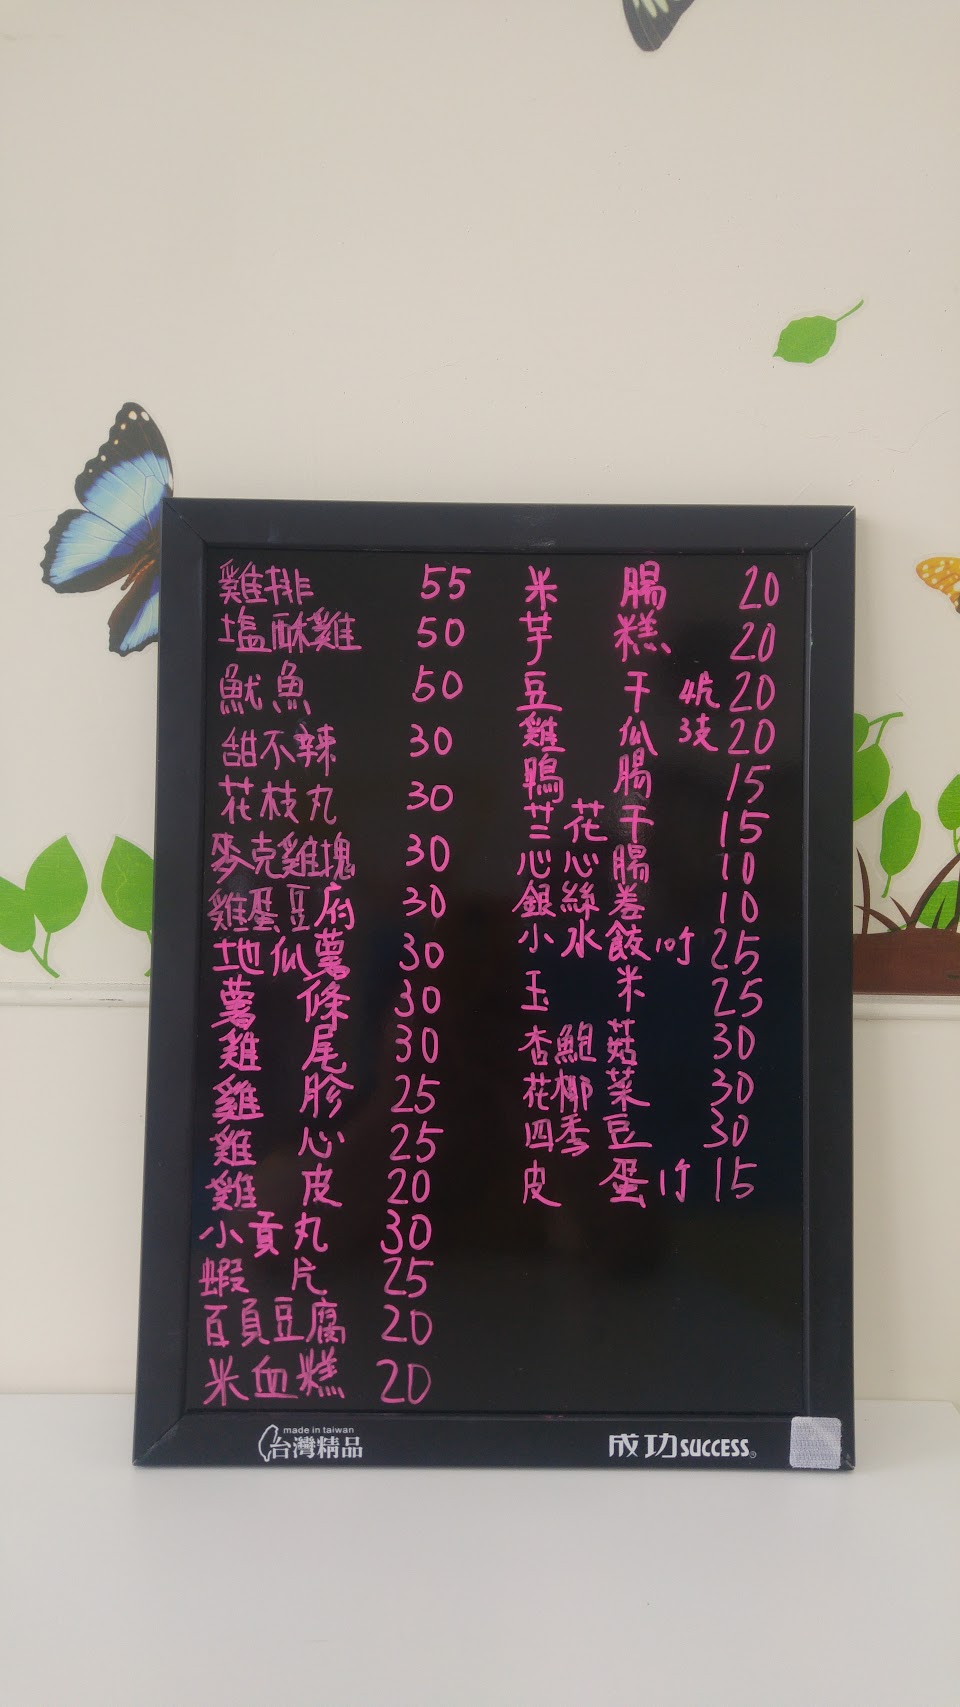 雞排 55
塩酥雞 50
魷魚 50
甜不辣 30
花枝丸 30
麥克雞塊 30
雞蛋豆府 30
地瓜薯 30
薯條 30
雞尾 30
雞胗 25
雞心 25
雞皮 20
小貢丸 30
蝦片 25
百頁豆腐 20
米血糕 20
米腸 20
芋糕 20
豆干 4片 20
雞瓜 3支 20
鴨腸 15
芸花干 15
心心腸 10
銀絲卷 10
小水餃 10個 25
玉米 25
杏鮑菇 30
花椰菜 30
四季豆 30
皮蛋 1個 15
made in taiwan
台灣精品
成功 SUCCESS